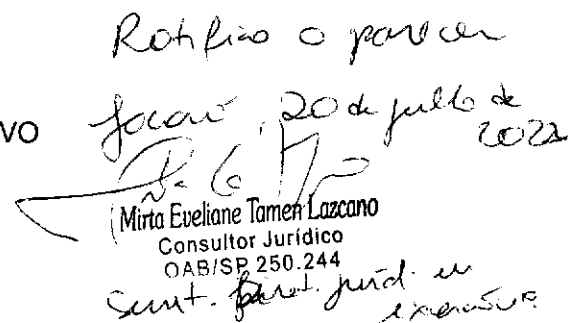 Ratifico o parecer
VO Jacareí, 20 de julho de
2022
Mirta Eveliane Tamen Lazcano
Consultor Jurídico
OAB/SP 250.244
jurid. em